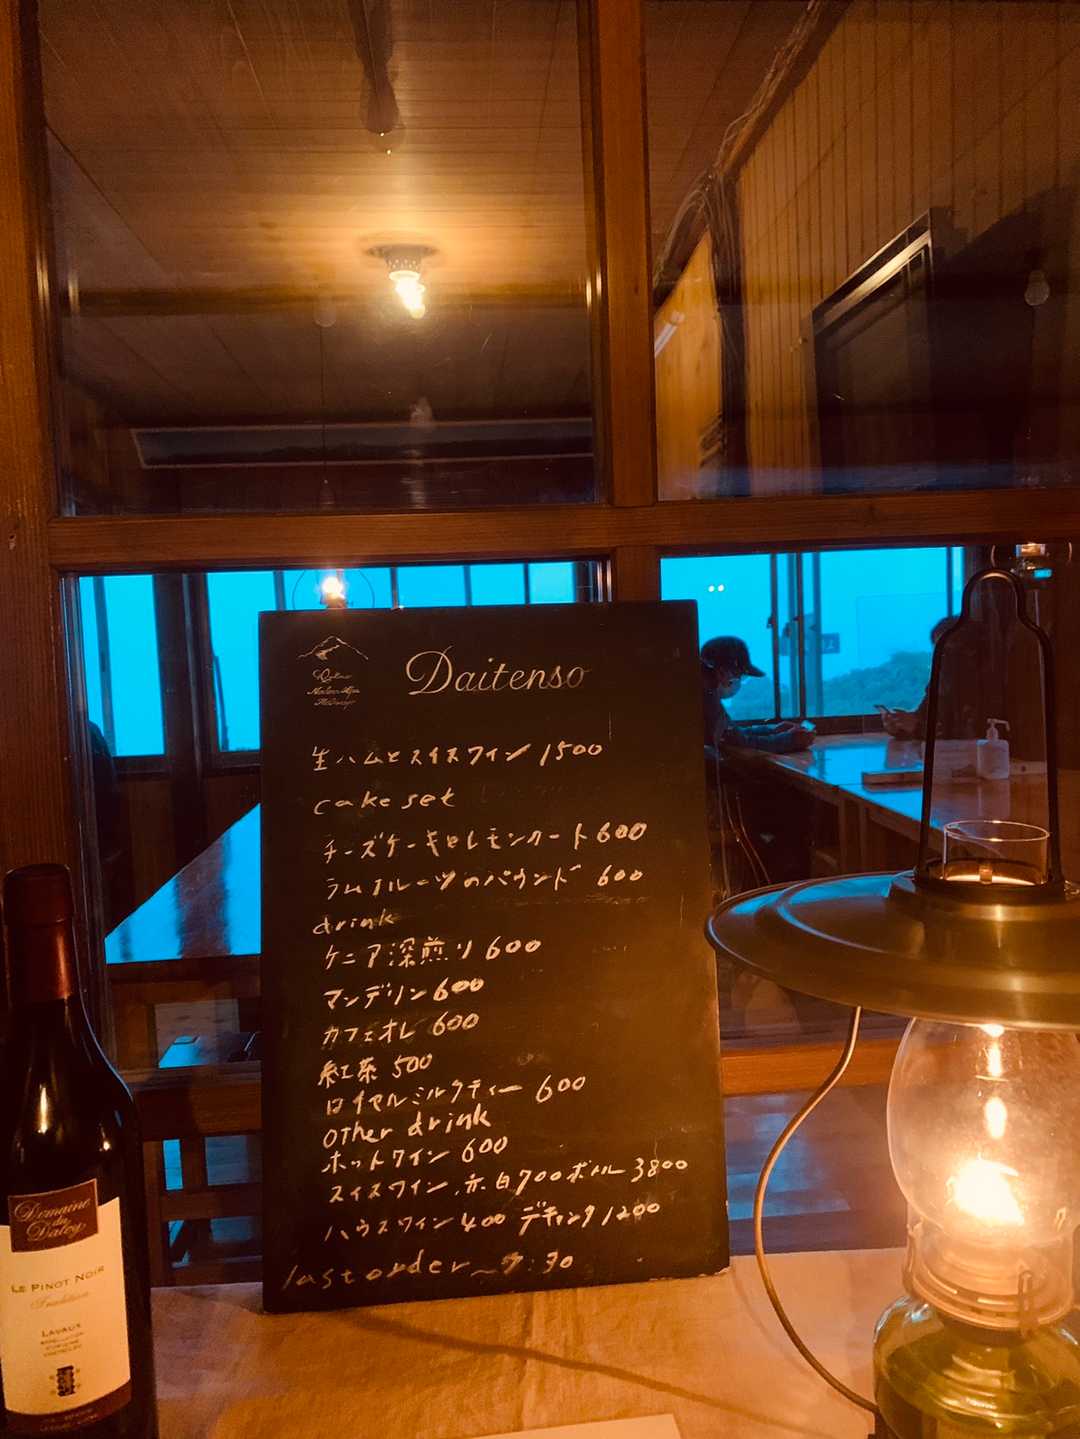 Daitenso
生ハムとスイスワイン 1500
cake set
チーズケーキ レモンタート 600
ラムフルーツのパウンド 600
drink
ケニア深煎り 600
マンデリン 600
カフェオレ 600
紅茶 500
ロイヤルミルクティー 600
other drink
ホットワイン 600
スイスワイン、赤、白 700 ボトル 3800
ハウスワイン 400 デキャンタ 1200
last order ~7:30
Domaine du Daley
LE PINOT NOIR
Tradition
LAVAUX